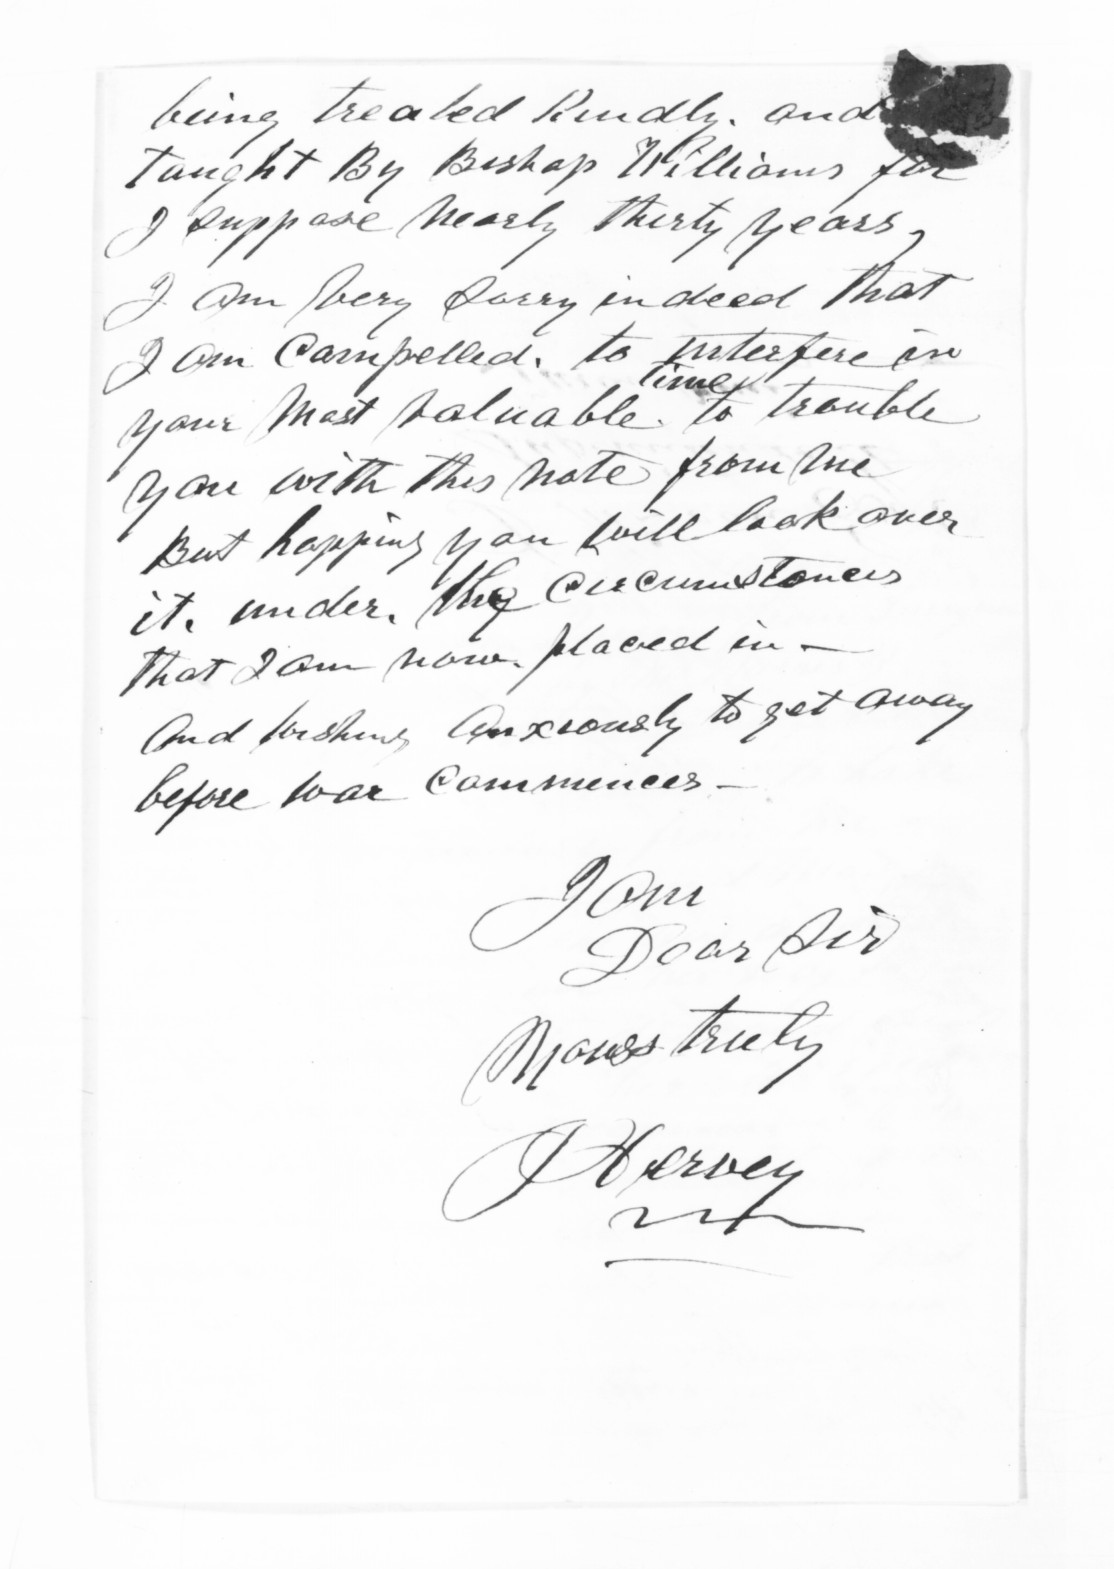 being treated Kindly. and
taught By Bishop Williams for
I suppose nearly thirty years,
I am very sorry indeed that
I am Compelled. to interfere in
your Most valuable. time to trouble
you with this note from me
But hopping you will look over
it. under. the Circumstances
that I am now. placed in —
And wishing Anxiously to get away
before war Commences —
I am
Dear Sir
Yours truly
J Hervey